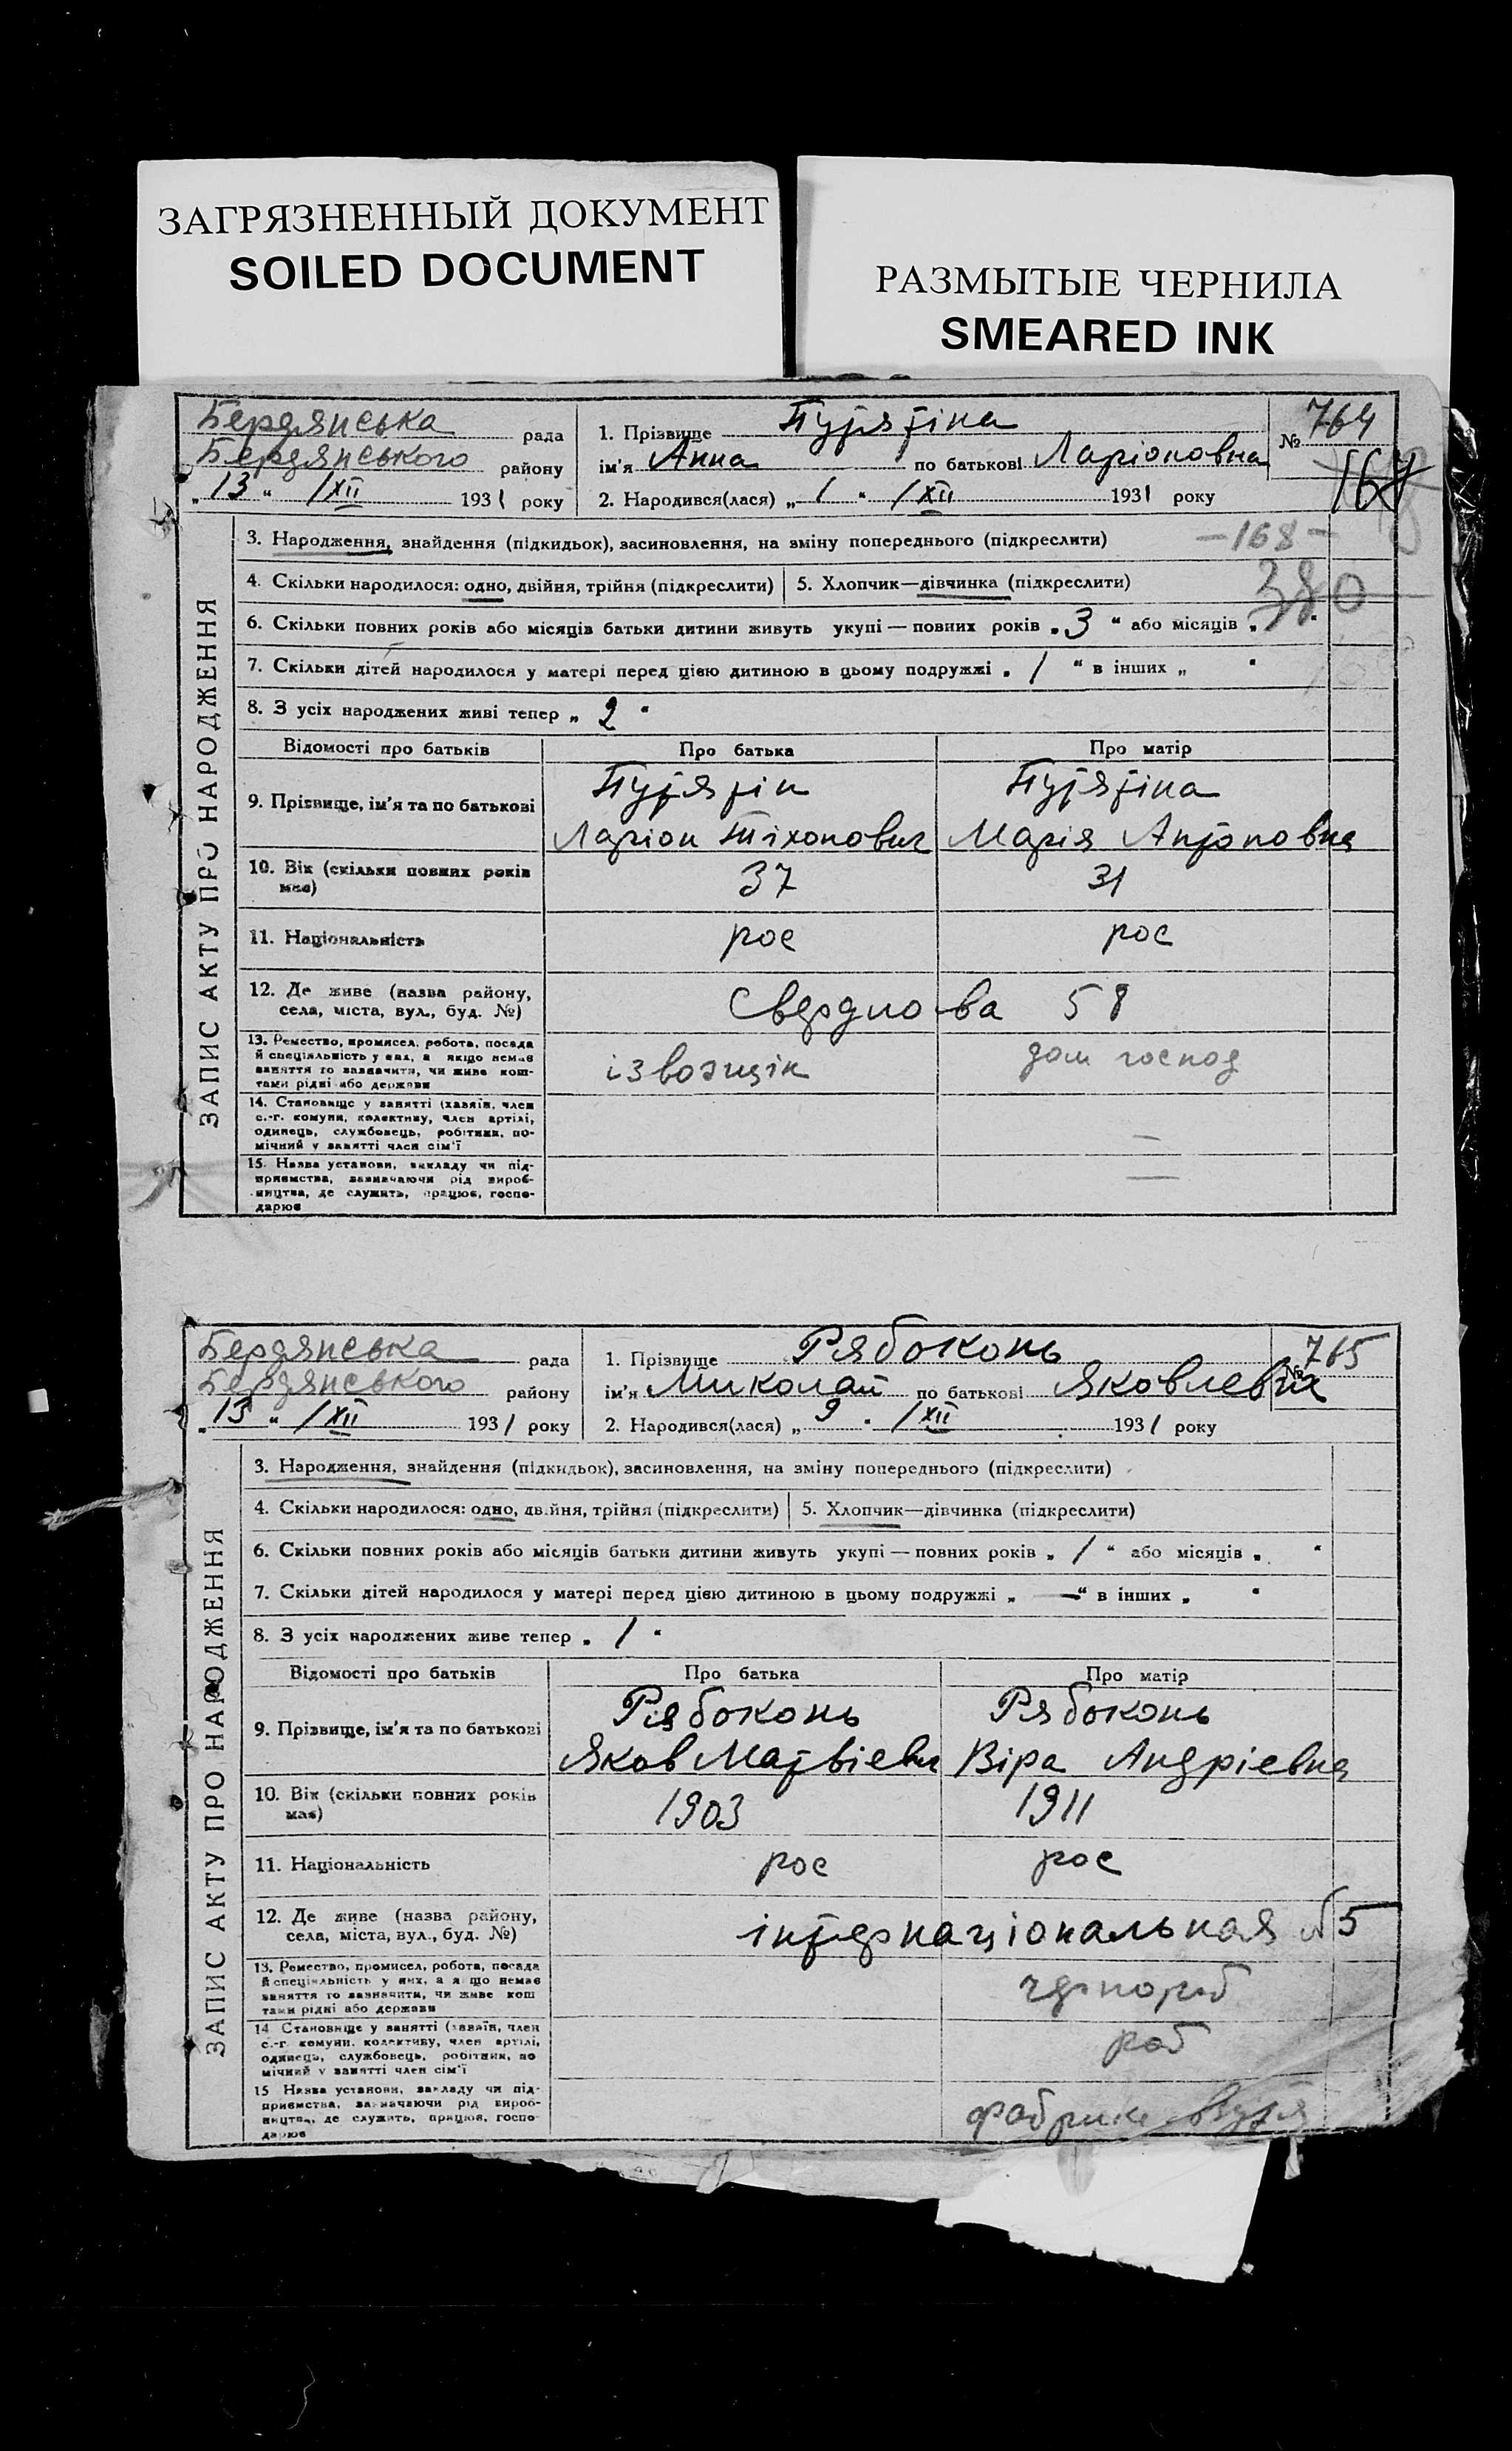 ЗАГРЯЗНЕННЫЙ ДОКУМЕНТ
SOILED DOCUMENT
РАЗМЫТЫЕ ЧЕРНИЛА
SMEARED INK
ЗАПИС АКТУ ПРО НАРОДЖЕННЯ
Бердянська рада
Бердянського району
„13" /XII 1931 року
1. Прізвище Путятіна
ім'я Анна по батькові Ларіоновна
2. Народився(лася) „1" /XII 1931 року
№ 764
167
3. Народження, знайдення (підкидьок), засиновлення, на зміну попереднього (підкреслити)
—168—
4. Скільки народилося: одно, двійня, трійня (підкреслити) 5. Хлопчик—дівчинка (підкреслити)
380
6. Скільки повних років або місяців батьки дитини живуть укупі — повних років „3" або місяців „ "
7. Скільки дітей народилося у матері перед цією дитиною в цьому подружжі „1" в інших „ "
8. З усіх народжених живі тепер „2"
Відомості про батьків Про батька Про матір
9. Прізвище, ім'я та по батькові
Путятін Путятіна
Ларіон Тіхонович Марія Антоновна
10. Вік (скільки повних років має) 37 31
11. Національність рос рос
12. Де живе (назва району, села, міста, вул., буд. №) Свердлова 58
13. Ремество, промисел, робота, посада й спеціяльність у них, а якщо немає заняття то зазначити, чи живе коштами рідні або держави
ізвозщік дом господ
14. Становище у занятті (хазяїн, член с.-г. комуни, колективу, член артілі, одинець, службовець, робітник, помічний у занятті член сім'ї —
15. Назва установи, закладу чи підприємства, зазначаючи рід виробництва, де служить, працює, господарює —
ЗАПИС АКТУ ПРО НАРОДЖЕННЯ
Бердянська рада
Бердянського району
„13" /XII 1931 року
1. Прізвище Рябоконь
ім'я Миколай по батькові Яковлевич
2. Народився(лася) „9" /XII 1931 року
№ 765
3. Народження, знайдення (підкидьок), засиновлення, на зміну попереднього (підкреслити)
4. Скільки народилося: одно, двійня, трійня (підкреслити) 5. Хлопчик—дівчинка (підкреслити)
6. Скільки повних років або місяців батьки дитини живуть укупі — повних років „1" або місяців „ "
7. Скільки дітей народилося у матері перед цією дитиною в цьому подружжі „—" в інших „ "
8. З усіх народжених живе тепер „1"
Відомості про батьків Про батька Про матір
9. Прізвище, ім'я та по батькові
Рябоконь Рябоконь
Яков Матвіевич Віра Андріевна
10. Вік (скільки повних років має) 1903 1911
11. Національність рос рос
12. Де живе (назва району, села, міста, вул., буд. №) інтернаціональная №5
13. Ремество, промисел, робота, посада й спеціяльність у них, а якщо немає заняття то зазначити, чи живе коштами рідні або держави
чернороб
14 Становище у занятті (хазяїн, член с.-г. комуни, колективу, член артілі, одинець, службовець, робітник, помічний у занятті член сім'ї
роб
15 Назва установи, закладу чи підприємства, зазначаючи рід виробництва, де служить, працює, господарює
фабрика